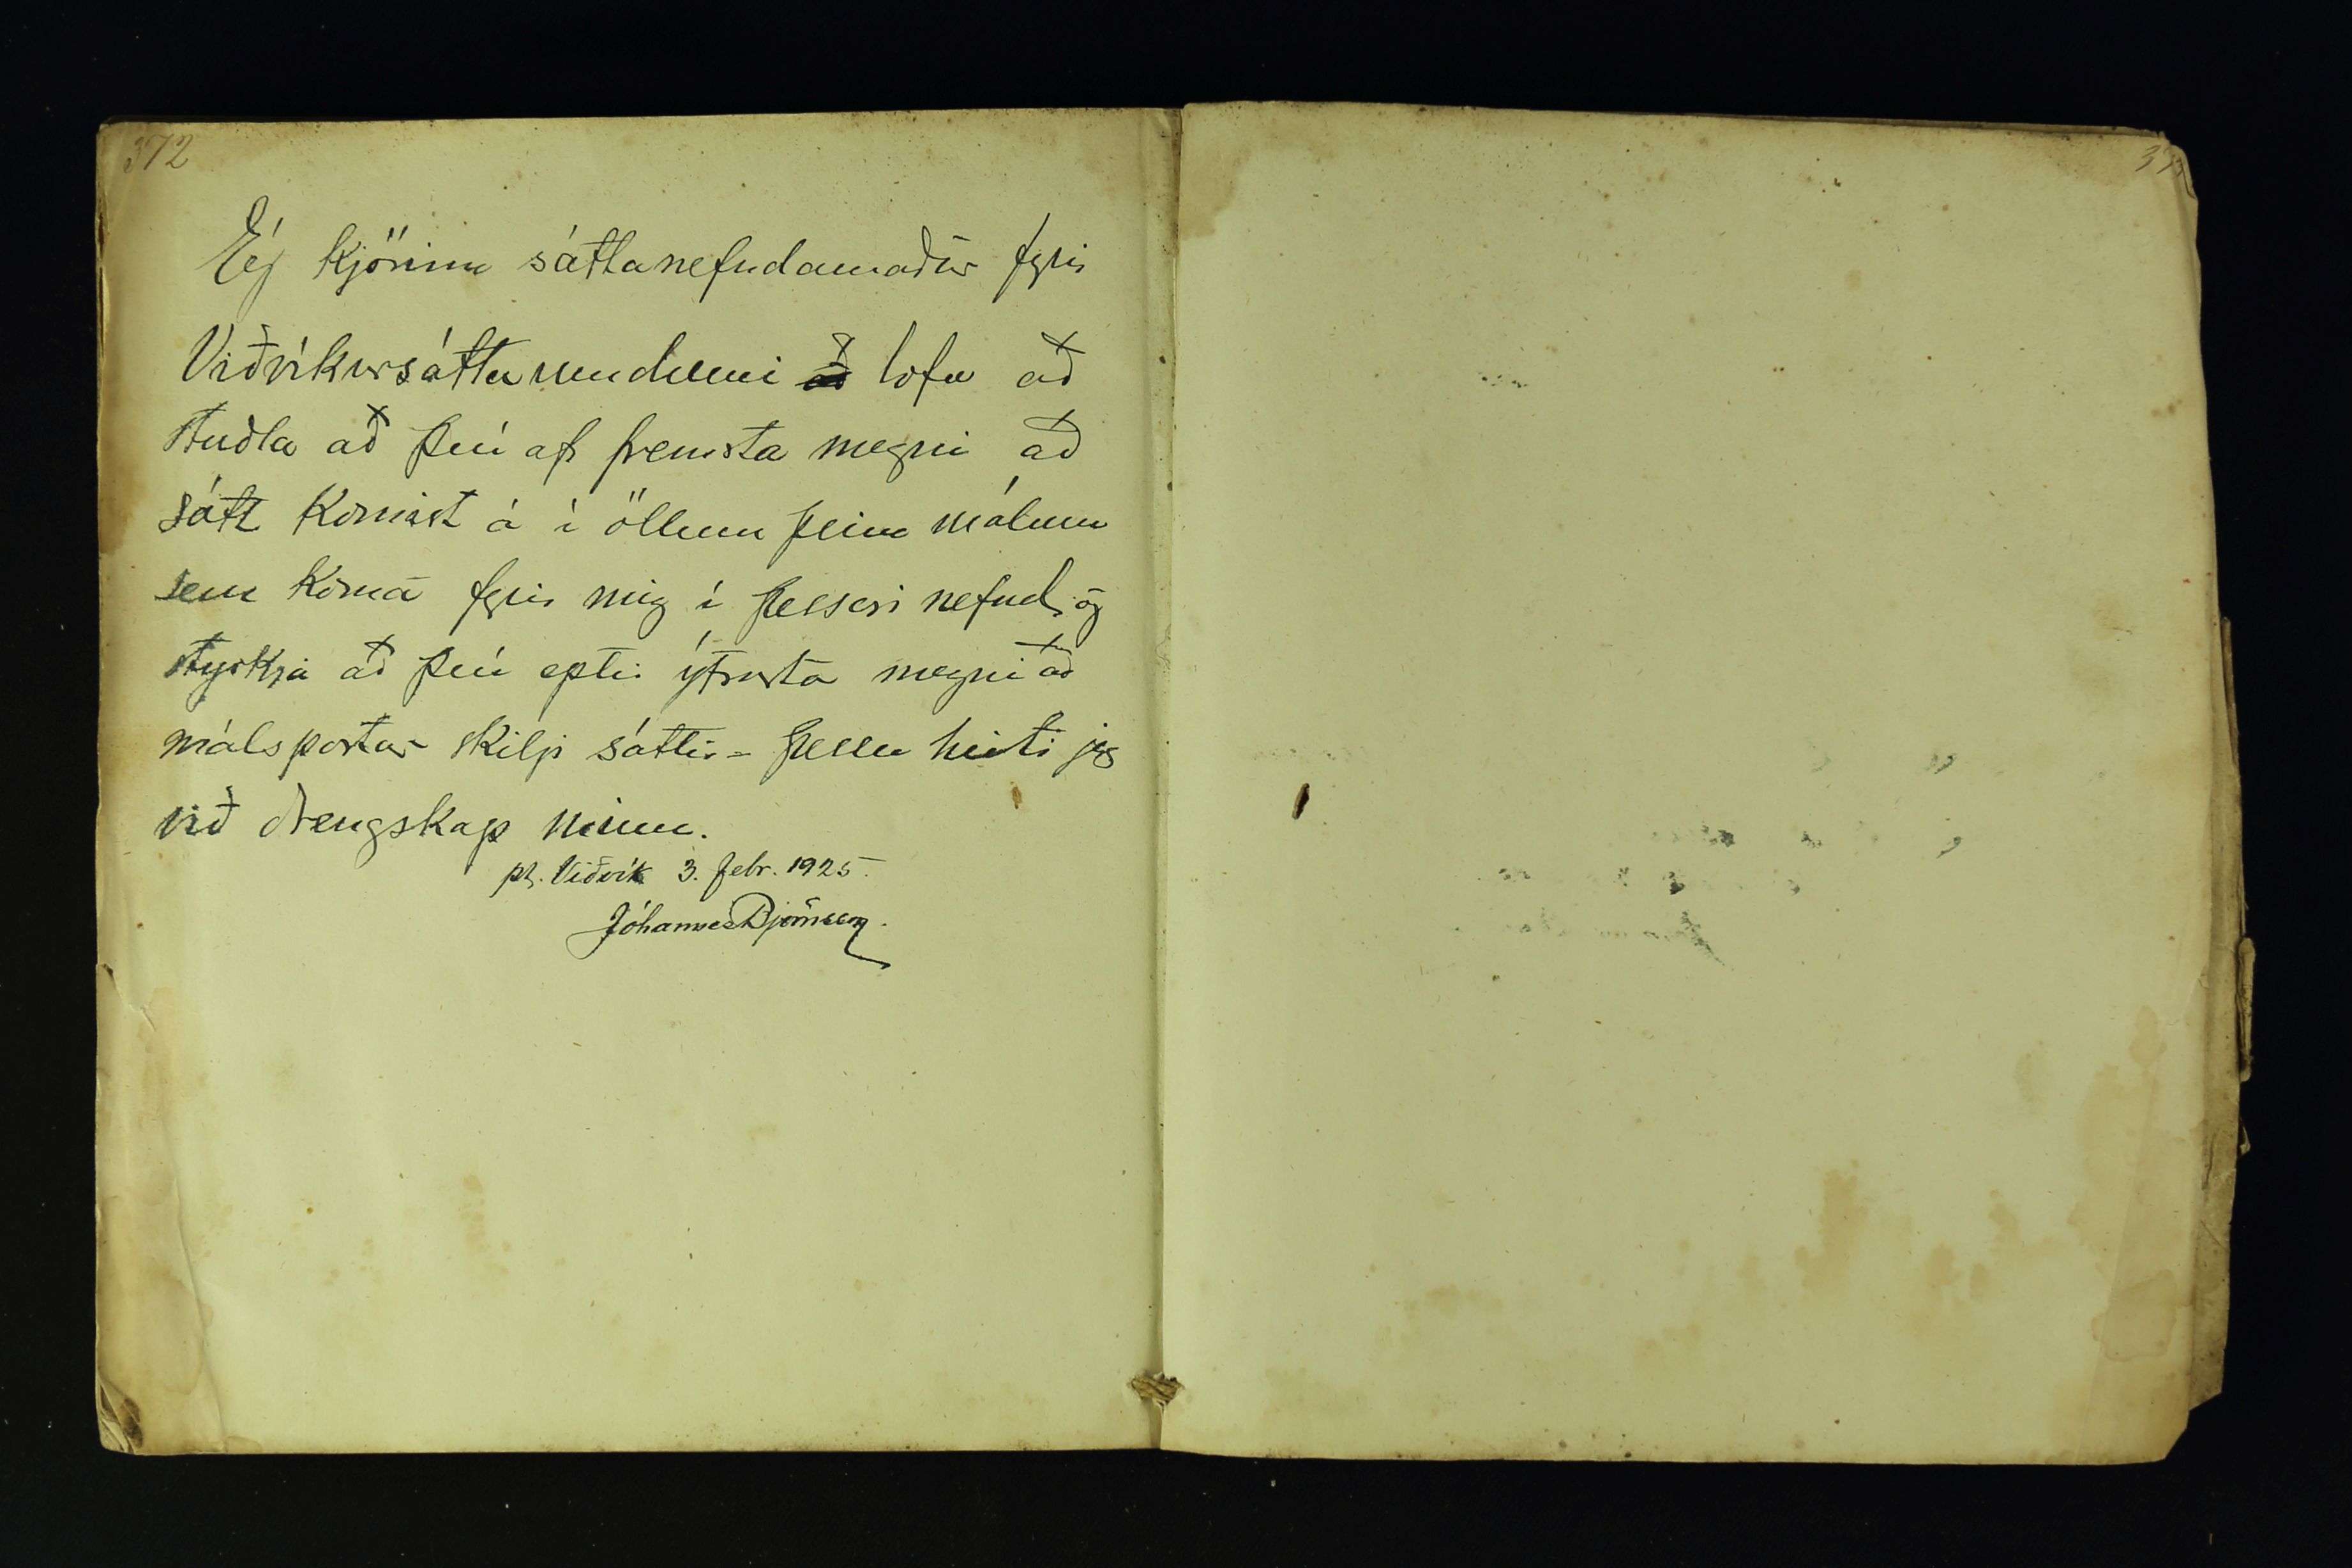 372
Ég kjörinn sáttanefndamaður fyrir
Viðvíkursáttaumdæmi að lofa að
stuðla að því af fremsta megni að
sátt komist á í öllum þeim málum
sem koma fyrir mig í þessari nefnd, og
styrkja að því eptir ýtrasta megni að
málspartar skilji sáttir = þessu heiti jeg
við drengskap minn.
pt. Viðvík 3. febr. 1925.
Jóhannes Björnsson.